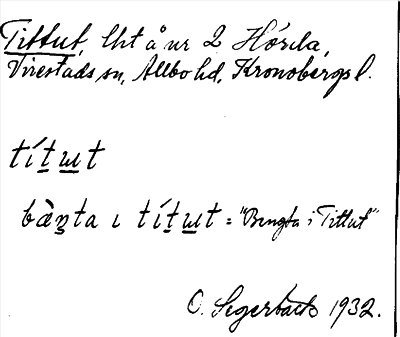 Tittut, lht å nr 2 Hörda,
Virestads sn, Allbo hd, Kronobergs l.
títɯt
bàŋta ı títɯt = "Bengta i Tittut"
O. Segerbäck 1932.